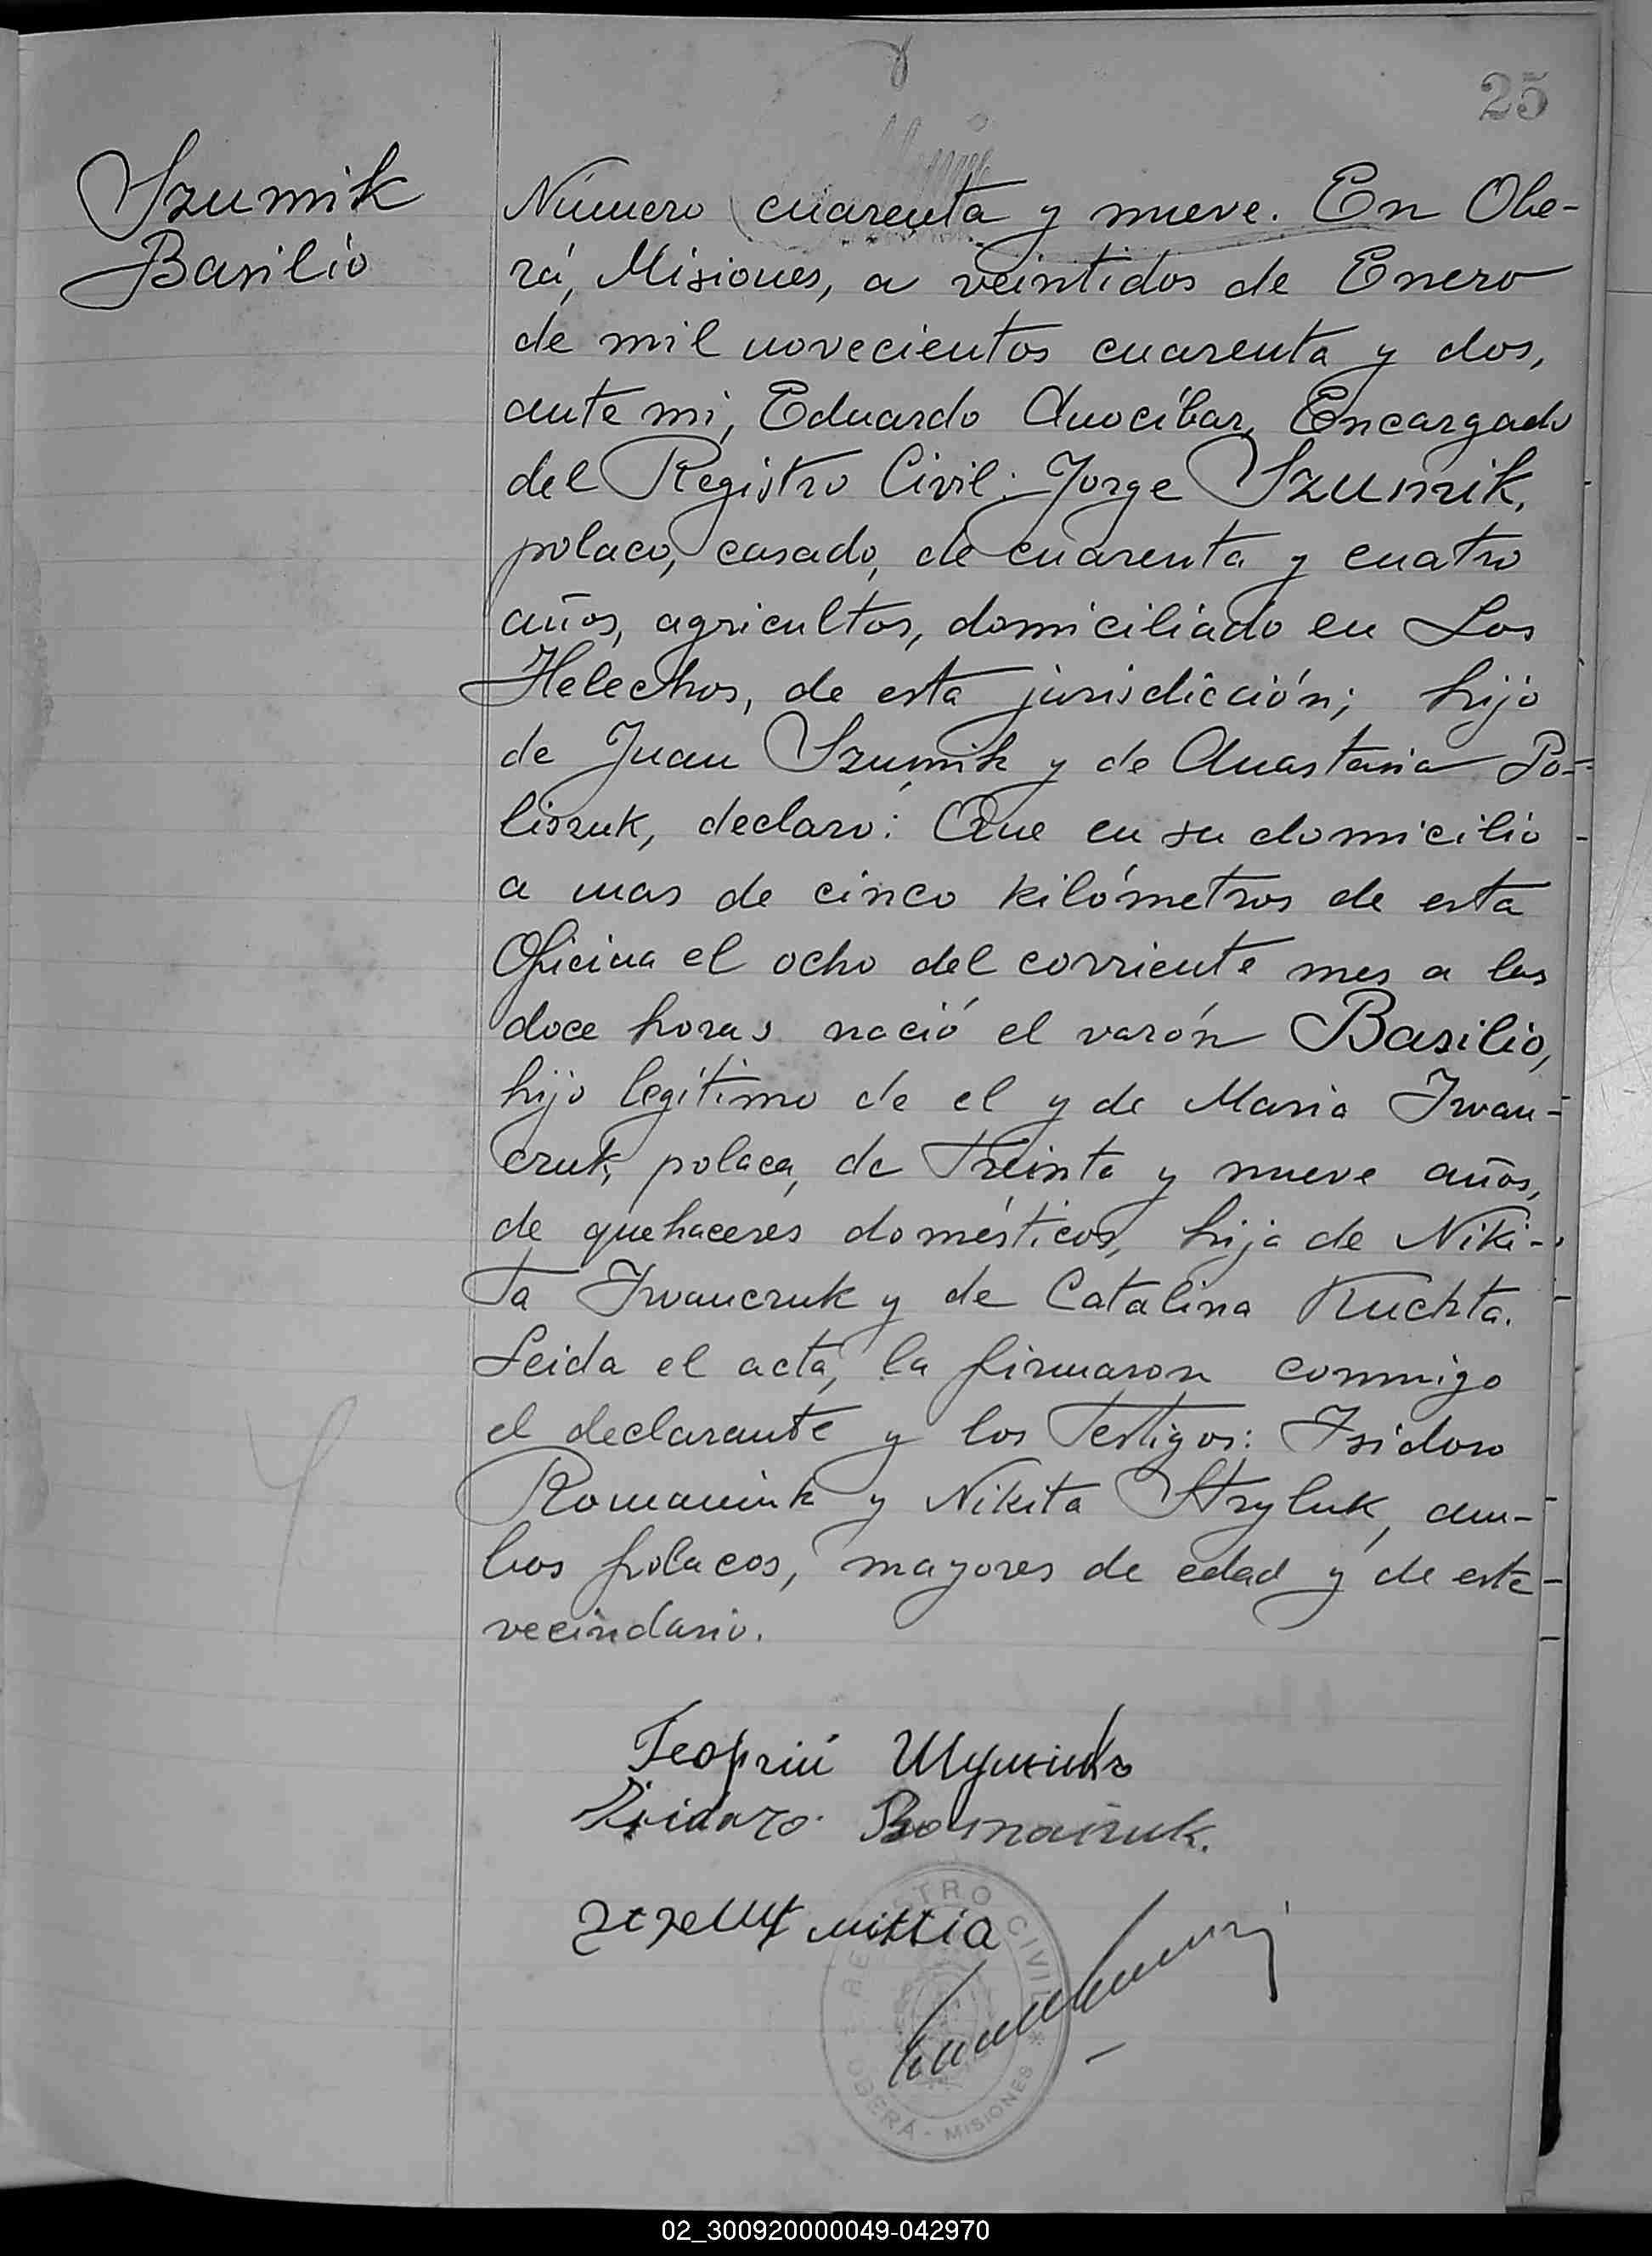 25
Szumik
Basilio
Número cuarenta y nueve. En Obe-
rá, Misiones, a veintidos de Enero
de mil novecientos cuarenta y dos,
ante mi, Eduardo Anocíbar, Encargado
del Registro Civil: Jorge Szumik,
polaco, casado, de cuarenta y cuatro
años, agricultor, domiciliado en Los
Helechos, de esta jurisdicción; hijo
de Juan Szumik y de Anastasia Po-
liszuk, declaró: Que en su domicilio
a mas de cinco kilómetros de esta
Oficina el ocho del corriente mes a las
doce horas nació el varón Basilio,
hijo legítimo de el y de Maria Iwan-
czuk, polaca, de treinta y nueve años,
de quehaceres domésticos, hija de Niki-
ta Iwanczuk y de Catalina Kuchta.
Leida el acta, la firmaron conmigo
el declarante y los testigos: Isidoro
Romaniuk y Nikita Stryluk, am-
bos polacos, mayores de edad y de este
vecindario.
Георгій Шумикъ
Isidoro Romaniuk.
REGISTRO CIVIL
OBERÁ - MISIONES
02_300920000049-042970